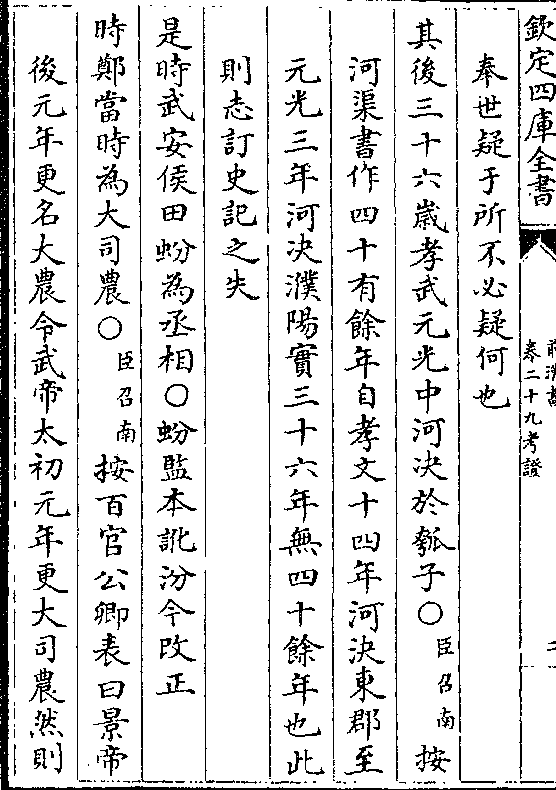 欽定四庫全書
卷二十九考證
奉世疑于所不必疑何也
其後三十六歲孝武元光中河決於瓠子○臣召南按
河渠書作四十有餘年自孝文十四年河決東郡至
元光三年河決濮陽實三十六年無四十餘年也此
則志訂史記之失
是時武安侯田蚡為丞相○蚡監本訛汾今改正
時鄭當時為大司農○臣召南按百官公卿表曰景帝
後元年更名大農令武帝太初元年更大司農然則